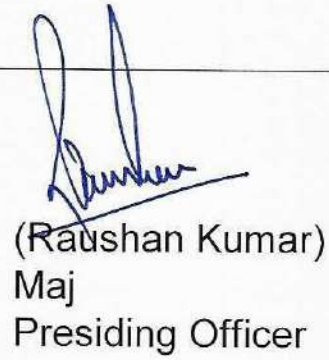 (Raushan Kumar)
Maj
Presiding Officer